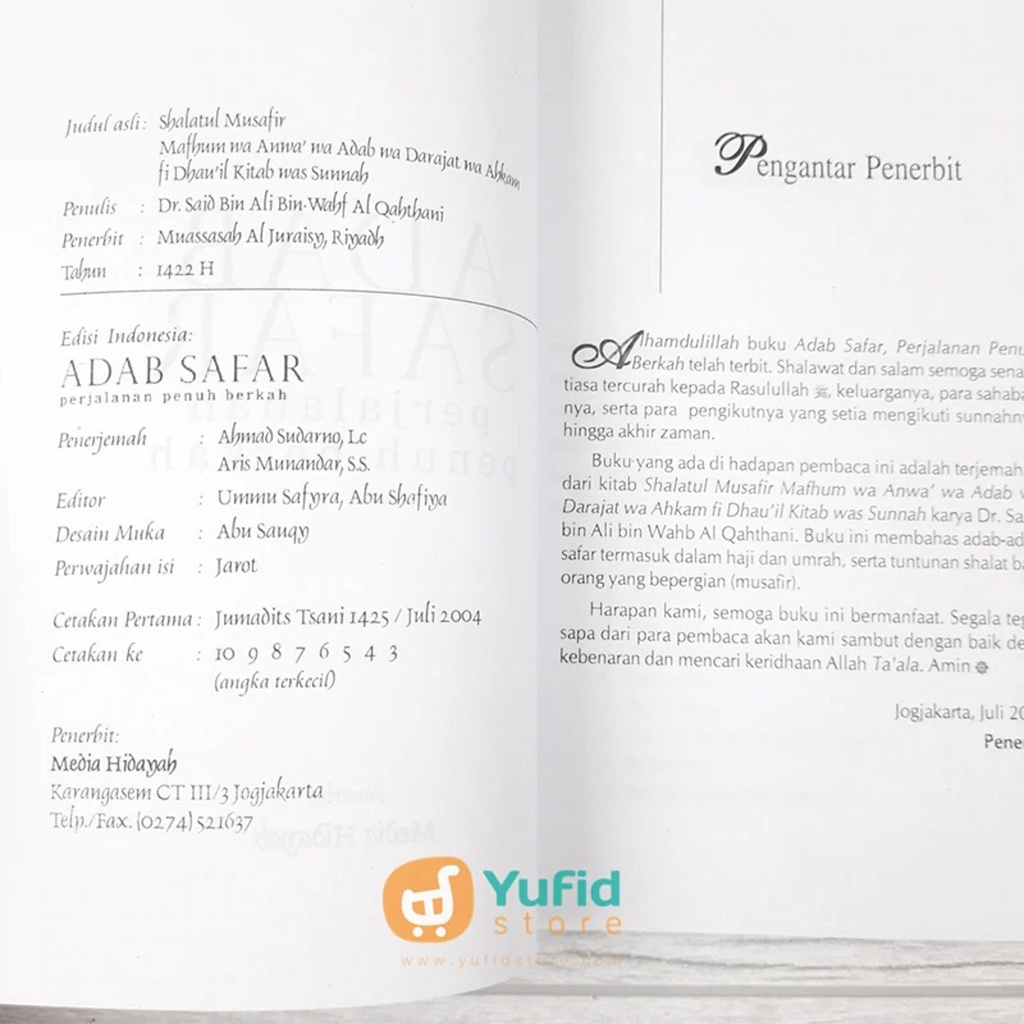 Judul asli : Shalatul Musafir
Mafhum wa Anwa' wa Adab wa Darajat wa Ahkam
fi Dhau'il Kitab was Sunnah
Penulis : Dr. Said Bin Ali Bin Wahf Al Qahthani
Penerbit : Muassasah Al Juraisy, Riyadh
Tahun : 1422 H
Edisi Indonesia:
ADAB SAFAR
perjalanan penuh berkah
Penerjemah : Ahmad Sudarno, Lc
Aris Munandar, S.S.
Editor : Ummu Safyra, Abu Shafiya
Desain Muka : Abu Sauqy
Perwajahan isi : Jarot
Cetakan Pertama : Jumadits Tsani 1425 / Juli 2004
Cetakan ke : 10 9 8 7 6 5 4 3
(angka terkecil)
Penerbit:
Media Hidayah
Karangasem CT III/3 Jogjakarta
Telp./Fax. (0274) 521637
Pengantar Penerbit
Alhamdulillah buku Adab Safar, Perjalanan Penu
Berkah telah terbit. Shalawat dan salam semoga sena
tiasa tercurah kepada Rasulullah ﷺ, keluarganya, para sahaba
nya, serta para pengikutnya yang setia mengikuti sunnahn
hingga akhir zaman.
Buku yang ada di hadapan pembaca ini adalah terjemah
dari kitab Shalatul Musafir Mafhum wa Anwa' wa Adab w
Darajat wa Ahkam fi Dhau'il Kitab was Sunnah karya Dr. Sa
bin Ali bin Wahb Al Qahthani. Buku ini membahas adab-ad
safar termasuk dalam haji dan umrah, serta tuntunan shalat ba
orang yang bepergian (musafir).
Harapan kami, semoga buku ini bermanfaat. Segala teg
sapa dari para pembaca akan kami sambut dengan baik de
kebenaran dan mencari keridhaan Allah Ta'ala. Amin
Jogjakarta, Juli 20
Pene
Yufid
store
www.yufidstore.com